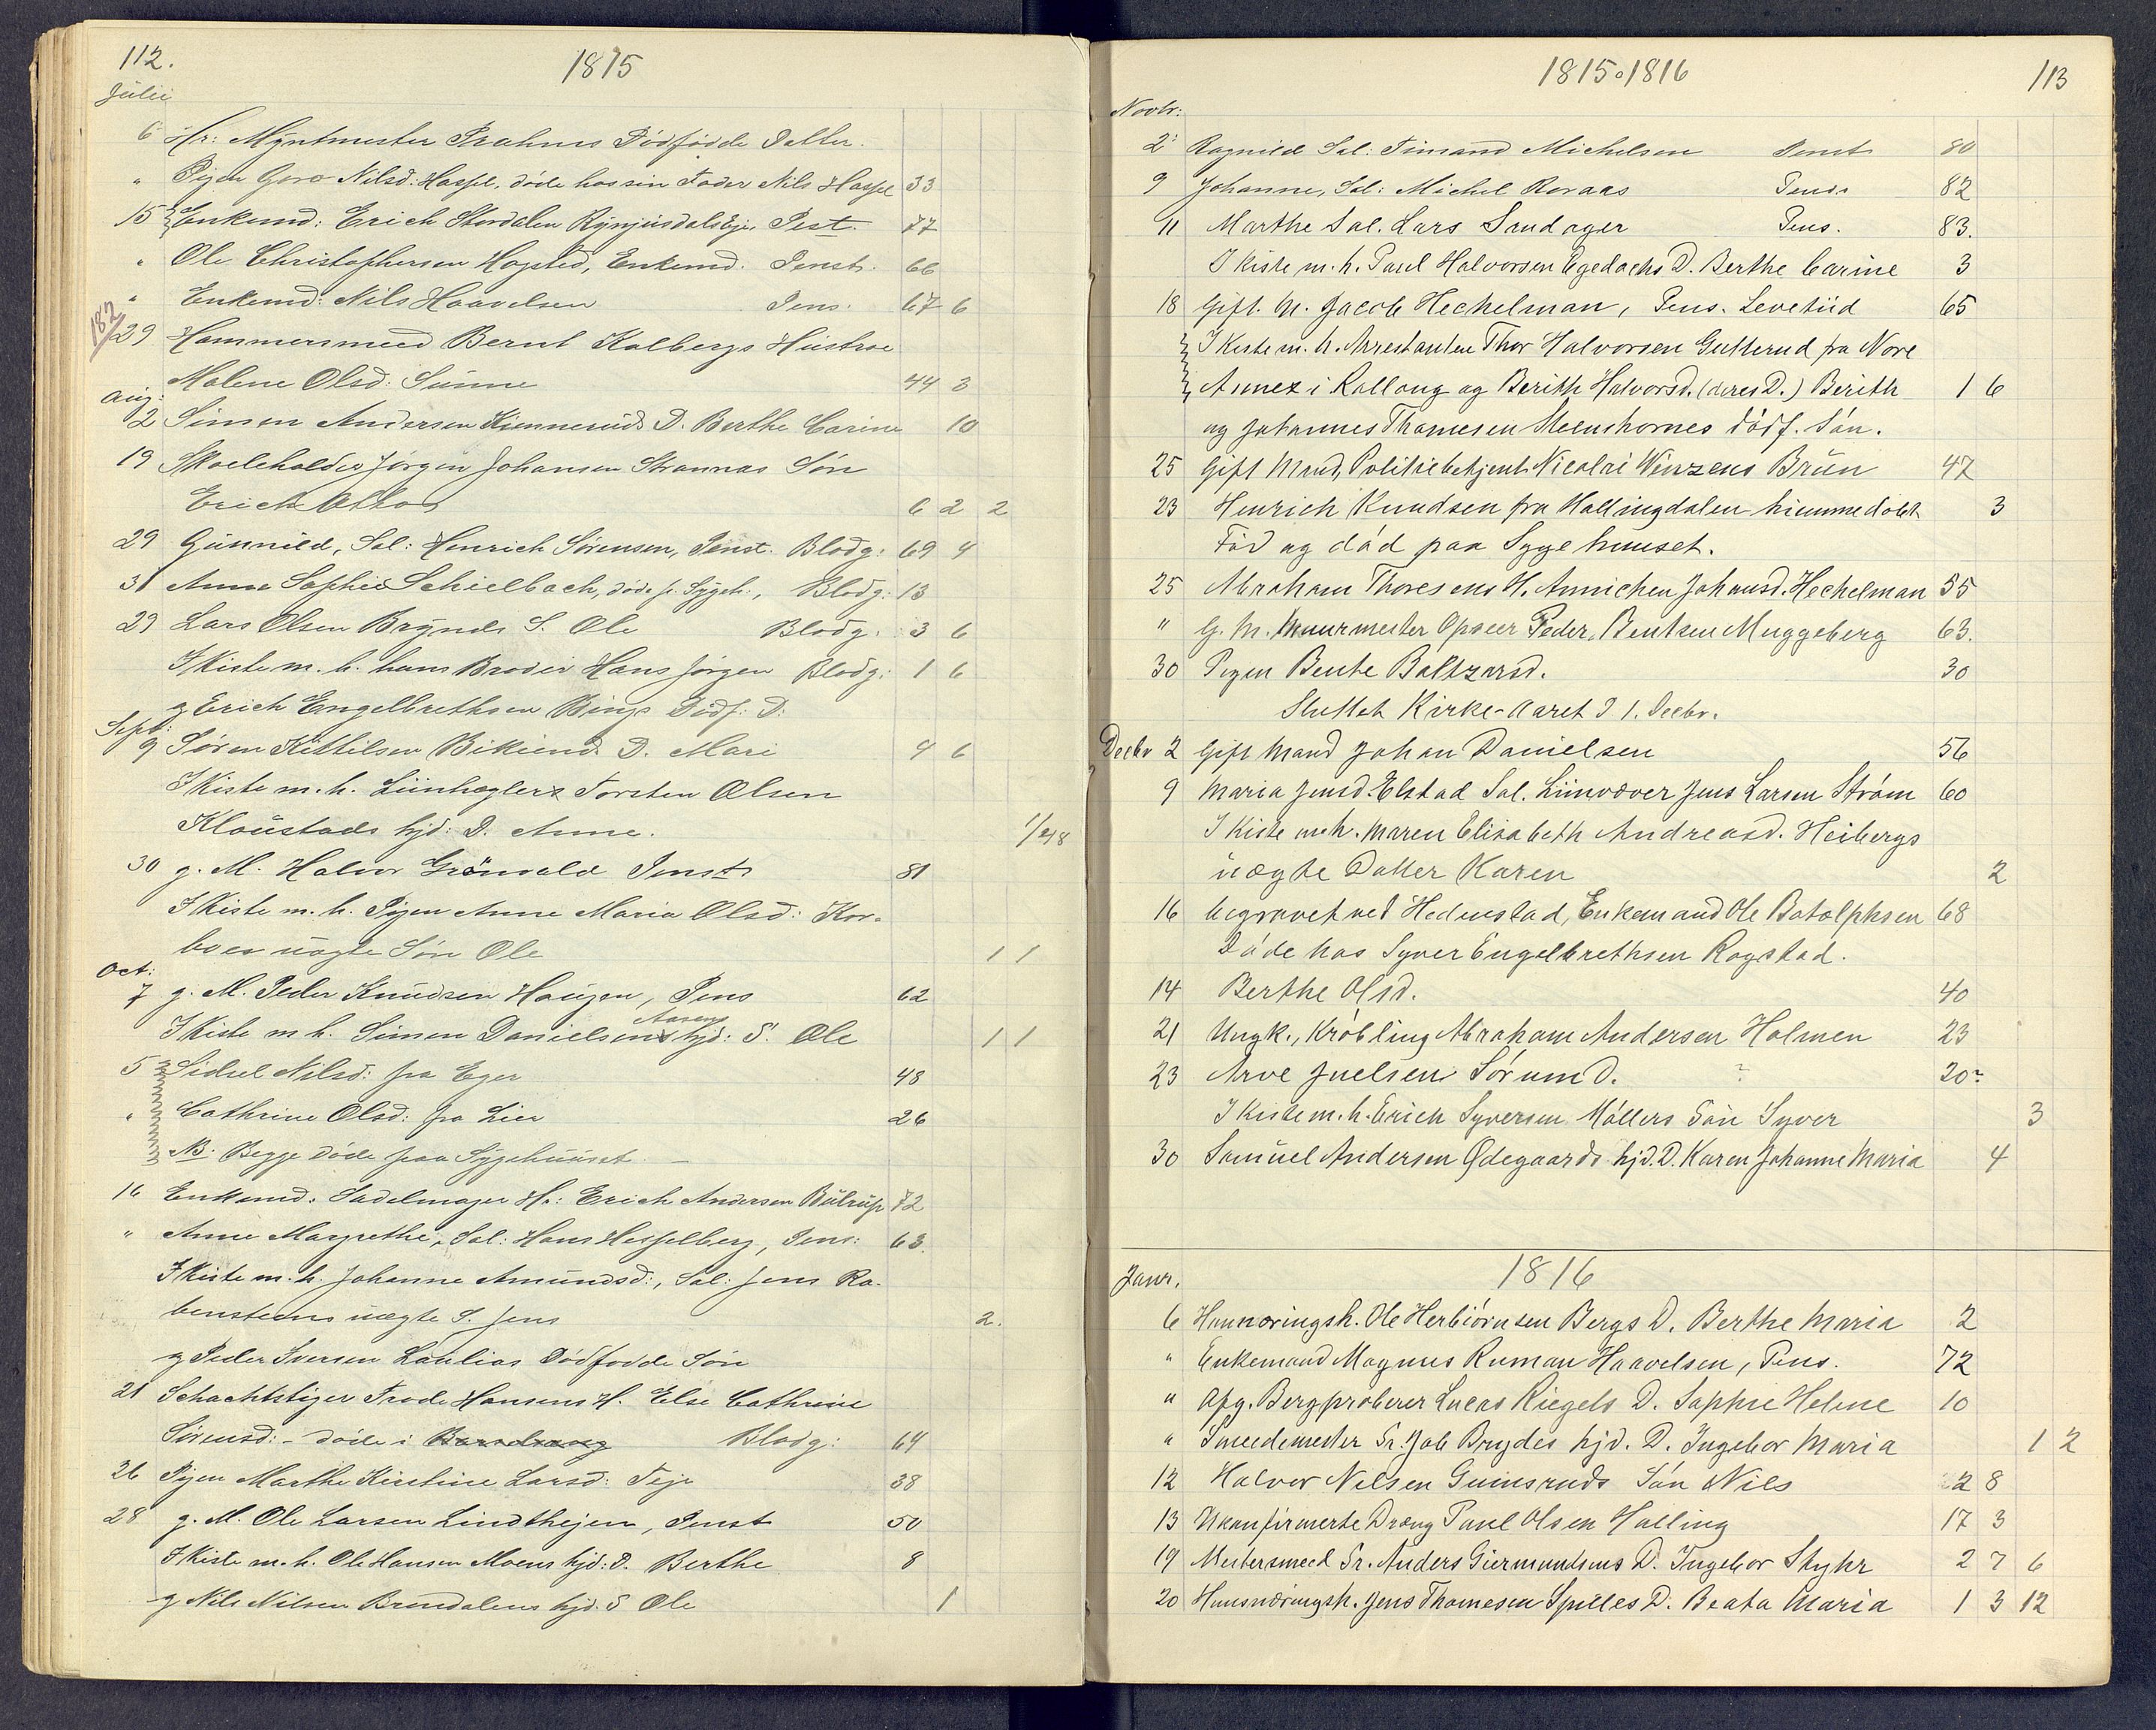 112.
1815
Julii
6 Hr: Myntmester Prahms Dödfödde Datter.
" Pigen Goro Nilsd: Hassel, döde hos sin Fader Nils Hassel 33
15 Enkemd: Erich Stordalen Pest. 77
" Ole Christophersen Hogsted, Enkemd. Penst. 66
" Enkemd: Nils Haavelsen Pens. 67 6
182
29 Hammersmed Bernt Kolbergs Hustroe
Malene Olsd: Sünne 44 3
Aug:
12 Simen Andersen Kiennerüds D. Berthe Carine 10
19 Skoleholder Jörgen Johansen Strannas Sön
Erich Otto 6 2 2
29 Günnild, Sal: Henrich Sörensen, Penst. Blodg: 69 4
31 Anne Sophie Schielbach, döde p. Sygeh:, Blodg: 13
29 Lars Olsen Brynds S. Ole Blodg. 3 6
I Kiste m. h. hans Broder Hans Jörgen Blodg: 1 6
og Erich Engelbrethsen Bings Dödf: D:
Sept:
9 Sören Kittilsen Bikiends D. Mari 4 6
I Kiste m. h. Liinheglers Torsten Olsen
Kloüstads hjd: D. Anne. 1/48
30 g. M. Halvor Grönvold Penst 81
I Kiste m. h. Pigen Anne Maria Olsd: Kor-
boes uægte Sön Ole 1 1
Oct:
7 g. M. Peder Knudsen Haugen, Pens 62
I Kiste m h. Simen Danielsens Aasens hjd: S. Ole 1 1
5 Sidsel Nilsd: fra Eger 48
" Cathrine Olsd: fra Lier 26
NB. Begge döde paa Sygehuuset. —
16 Enkemd. Sadelmager Hr: Erich Andersen Bülrup 72
" Anne Margrethe, Sal: Hans Hesselberg, Pens: 63.
I Kiste m. h. Johanne Amundsd:, Sal: Jens Ra-
bensteens uægte S. Jens 2.
og Peder Iversen Laulias Dödfödde Sön
21 Schachtstiger Frode Hansens H. Else Cathrine
Sörensd: - döde i Barselseng Blodg: 64
26 Pigen Marthe Kirstine Larsd: Teje 38
28 g. M. Ole Larsen Lindthejen, Penst 50
I Kiste m. h. Ole Hansen Moens hjd: D. Berthe 8
og Nils Nilsen Brendalens hjd. S Ole 1
1815 o 1816
113
Novbr:
2 Ragnild Sal: Timand Michelsen Penst 80
9 Johanne, Sal: Michel Roraas Pens 82
11 Marthe Sal. Lars Sandager Pens. 83.
I Kiste m. h. Paul Halvorsen Egedachs D. Berthe Carine 3
18 Gift. M. Jacob Hechelman, Pens. Levetiid 65
I Kiste m. h. Arrestanten Thor Halvorsen Gutterud fra Nore
Annex i Rollaug og Berith Halvorsd. (deres D.) Berith 1 6
og Johannes Thomesen Steenshornes dödf. Sön.
25 Gift Mand, Politiebetjent Nicolai Winzens Brün 47
23 Henrich Knudsen fra Hallingdalen hiemmedöbt 3
Föd og död paa Sygehuuset.
25 Abraham Thoresens H. Annichen Johansd. Hechelman 55
" G. M. Muurmester Opseer Peder Bentsen Muggeberg 63.
30 Pigen Bente Baltzarsd. 30
Sluttet Kirke-Aaret D 1. Decbr.
Decbr 2 Gift Mand Johan Danielsen 56
9 Maria Jensd. Elstad Sal. Liinvæver Jens Larsen Ström 60
I Kiste m. h. Maren Elisabeth Andreasd. Heibergs
uægte Datter Karen 2
16 begravet ved Hedenstad, Enkemand Ole Botolphsen 68
Döde hos Syver Engelbrethsen Rogstad.
14 Berthe Olsd. 40
21 Ungk., Kröbling Abraham Andersen Holmen 23
23 Arve Juelsen Sörum D. ? 20?
I Kiste m. h. Erich Syversen Möllers Sön Syver 3
30 Samüel Andersen Ødegaards hjd. D. Karen Johanne Maria 4
1816
Janr.
6 Huusnæringsh. Ole Herbiörnsen Bergs D. Berthe Maria 2
" Enkemand Magnus Ruman Haavelsen, Pens. 72
" Afg. Bergproberer Lucas Riegels D. Sophie Helene 10
" Smedemester Sr. Job Brydes hjd. D. Ingebor Maria 1 2
12 Halvor Nelsen Gunsruds Sön Nils 2 8
13 Ukonfirmerte Dreng Paul Olsen Halling 17 3
19 Mestersmed Sr. Anders Giermundsens D. Ingebor Styhr 2 7 6
20 Huusnæringsh. Jens Thomesen Spilles D. Beata Maria 1 3 12